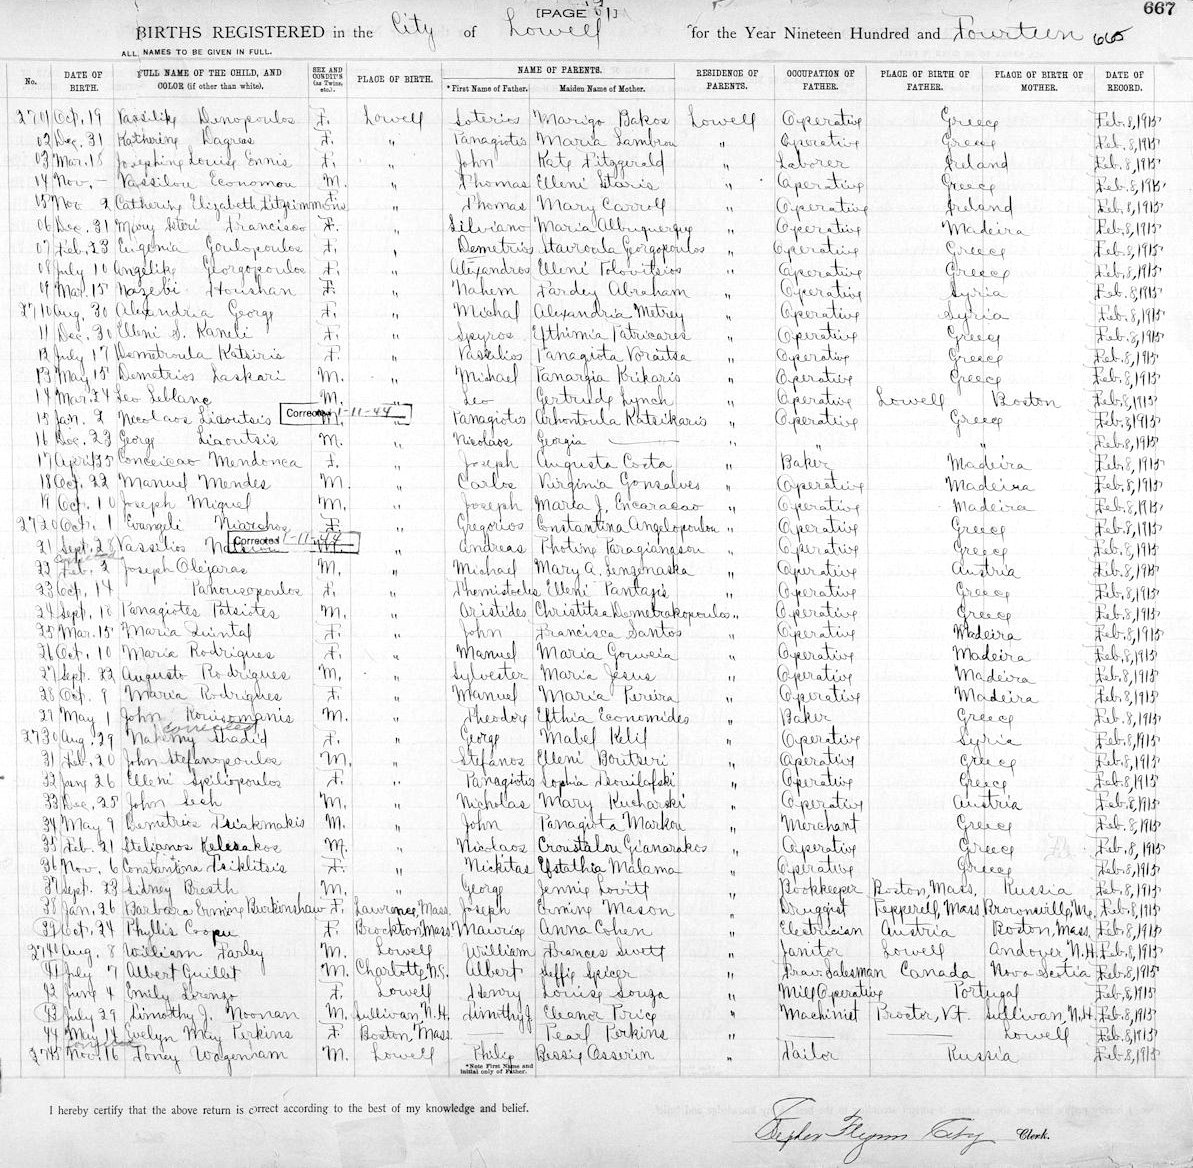 [PAGE 51] 667
BIRTHS REGISTERED in the City of Lowell for the Year Nineteen Hundred and Fourteen 665
ALL NAMES TO BE GIVEN IN FULL.
No. DATE OF BIRTH. FULL NAME OF THE CHILD, AND COLOR (if other than white). SEX AND CONDIT'N (as Twins, etc.). PLACE OF BIRTH. NAME OF PARENTS. *First Name of Father. Maiden Name of Mother. RESIDENCE OF PARENTS. OCCUPATION OF FATHER. PLACE OF BIRTH OF FATHER. PLACE OF BIRTH OF MOTHER. DATE OF RECORD.
2701 Oct. 19 Vassilike Dinopoulos F. Lowell Soterios Marigo Bakos Lowell Operative Greece Feb. 8, 1915
02 Dec. 31 Katherine Dagres F. " Panagiotis Maria Lambrou " Operative Greece Feb. 8, 1915
03 Mar. 18 Josephine Louise Ennis F. " John Kate Fitzgerald " Laborer Ireland Feb. 8, 1915
04 Nov. - Vassilou Economou M. " Thomas Elleni Staris " Operative Greece Feb. 8, 1915
05 Nov 2 Catherine Elizabeth Fitzsimmons F. " Thomas Mary Carroll " Operative Ireland Feb. 8, 1915
06 Dec. 31 Mary Francisco F. " Silviano Maria Albuquerque " Operative Madeira Feb. 8, 1915
07 Feb. 23 Eugenia Goulopoulos F. " Demetrios Stavroula Georgopoulos " Operative Greece Feb. 8, 1915
08 July 10 Angelike Georgopoulos F. " Alexandros Elleni Tolovitsios " Operative Greece Feb. 8, 1915
09 Mar. 15 Nazebi Houshan F. " Nahem Fardey Abraham " Operative Syria Feb. 8, 1915
2710 Aug. 30 Alexandria George F. " Michal Alexandria Metrey " Operative Syria Feb. 8, 1915
11 Dec. 30 Elleni S. Kaneli F. " Spyros Efthimia Patricares " Operative Greece Feb. 8, 1915
12 July 17 Demetroula Katsiris F. " Vasilios Panagiota Voraitsa " Operative Greece Feb. 8, 1915
13 May 15 Demetrios Laskari M. " Michael Panargia Krikaris " Operative Greece Feb. 8, 1915
14 Mar. 24 Leo Leblanc M. " Leo Gertrude Lynch " Operative Lowell Boston Feb. 8, 1915
15 Jan. 2 Nicolaos Liaoutsis Corrected 1-11-44 M. " Panagiotis Arhontoula Katsikaris " Operative Greece Feb. 8, 1915
16 Dec. 23 George Liaoutsis M. " Nicolaos Georgia " " " Feb. 8, 1915
17 April 25 Conceicao Mendonca F. " Joseph Augusta Costa " Baker Madeira Feb. 8, 1915
18 Oct. 22 Manuel Mendes M. " Carlos Virginia Gonsalves " Operative Madeira Feb. 8, 1915
19 Oct. 10 Joseph Miguel M. " Joseph Maria J. Encaracao " Operative Madeira Feb. 8, 1915
2720 Oct. 1 Evangeli Niarchos F. " Gregorios Constantina Angelopoulou " Operative Greece Feb. 8, 1915
21 Sept. 28 Vassilios Corrected 1-11-44 M. " Andreas Photine Karagianson " Operative Greece Feb. 8, 1915
22 Feb. 2 Joseph Olejaraz M. " Michael Mary A. Lenzenaska " Operative Austria Feb. 8, 1915
23 Oct. 14 Pahousopoulos F. " Themistocles Elleni Pantazis " Operative Greece Feb. 8, 1915
24 Sept. 18 Panagiotes Patsiotes M. " Aristides Christitsa Demetrakopoulos " Operative Greece Feb. 8, 1915
25 Mar. 15 Maria Quintal F. " John Francisca Santos " Operative Madeira Feb. 8, 1915
26 Oct. 10 Maria Rodrigues F. " Manuel Maria Gouveia " Operative Madeira Feb. 8, 1915
27 Sept. 22 Augusto Rodrigues M. " Sylvester Maria Jesus " Operative Madeira Feb. 8, 1915
28 Oct. 9 Maria Rodrigues F. " Manuel Maria Pereira " Operative Madeira Feb. 8, 1915
29 May 1 John M. " Theodore Efthia Economides " Baker Greece Feb. 8, 1915
corrected
2730 Aug. 29 Nahemy Shadid F. " George Mabel Kelif " Operative Syria Feb. 8, 1915
31 Feb. 20 John Stefanopoulos M. " Stefanos Elleni Boutseri " Operative Greece Feb. 8, 1915
32 Jany 26 Elleni Spiliopoulos F. " Panagiotis Sophia " Operative Greece Feb. 8, 1915
33 Dec. 25 John Lech M. " Nicholas Mary Kucharski " Operative Austria Feb. 8, 1915
34 May 9 Demetrios Tsiakmakis M. " John Panagiota Markou " Merchant Greece Feb. 8, 1915
35 Feb. 21 Stelianos Kelesakos M. " Nicolaos Croustalou Gianarakos " Operative Greece Feb. 8, 1915
36 Nov. 6 Constantina Tsiklitsis F. " Nickitas Efstathia Malama " Operative Greece Feb. 8, 1915
37 Sept. 23 Sidney Bresth M. " George Jennie Lovitt " Bookkeeper Boston, Mass. Russia Feb. 8, 1915
38 Jan. 26 Barbara Ermine Burkinshaw F. Lawrence, Mass. Joseph Ermine Mason " Druggist Pepperell, Mass Brownsville, Me. Feb. 8, 1915
39 Oct. 24 Phyllis Cooper F. Brockton, Mass Maurice Anna Cohen " Electrician Austria Boston, Mass. Feb. 8, 1915
2740 Aug. 8 William Farley M. Lowell William Frances Swett " Janitor Lowell Andover, N.H. Feb. 8, 1915
41 July 7 Albert Guillet M. Charlotte, N.C. Albert Effie Spicer " Trav. Salesman Canada Nova Scotia Feb. 8, 1915
42 June 4 Emily Lorenzo F. Lowell Henry Louise Souza " Mill Operative Portugal Feb. 8, 1915
43 July 29 Timothy J. Noonan M. Sullivan, N.H. Timothy J. Eleanor Price " Machinist Procter, Vt. Sullivan, N.H. Feb. 8, 1915
44 May 14 Evelyn May Perkins F Boston, Mass. Pearl Perkins " Lowell Feb. 8, 1915
2745 Nov. 16 Toney M. Lowell Philip Bessie Asserin " Tailor Russia Feb. 8, 1915
*Note First Name and initial only of Father.
I hereby certify that the above return is correct according to the best of my knowledge and belief.
Stephen Flynn City Clerk.